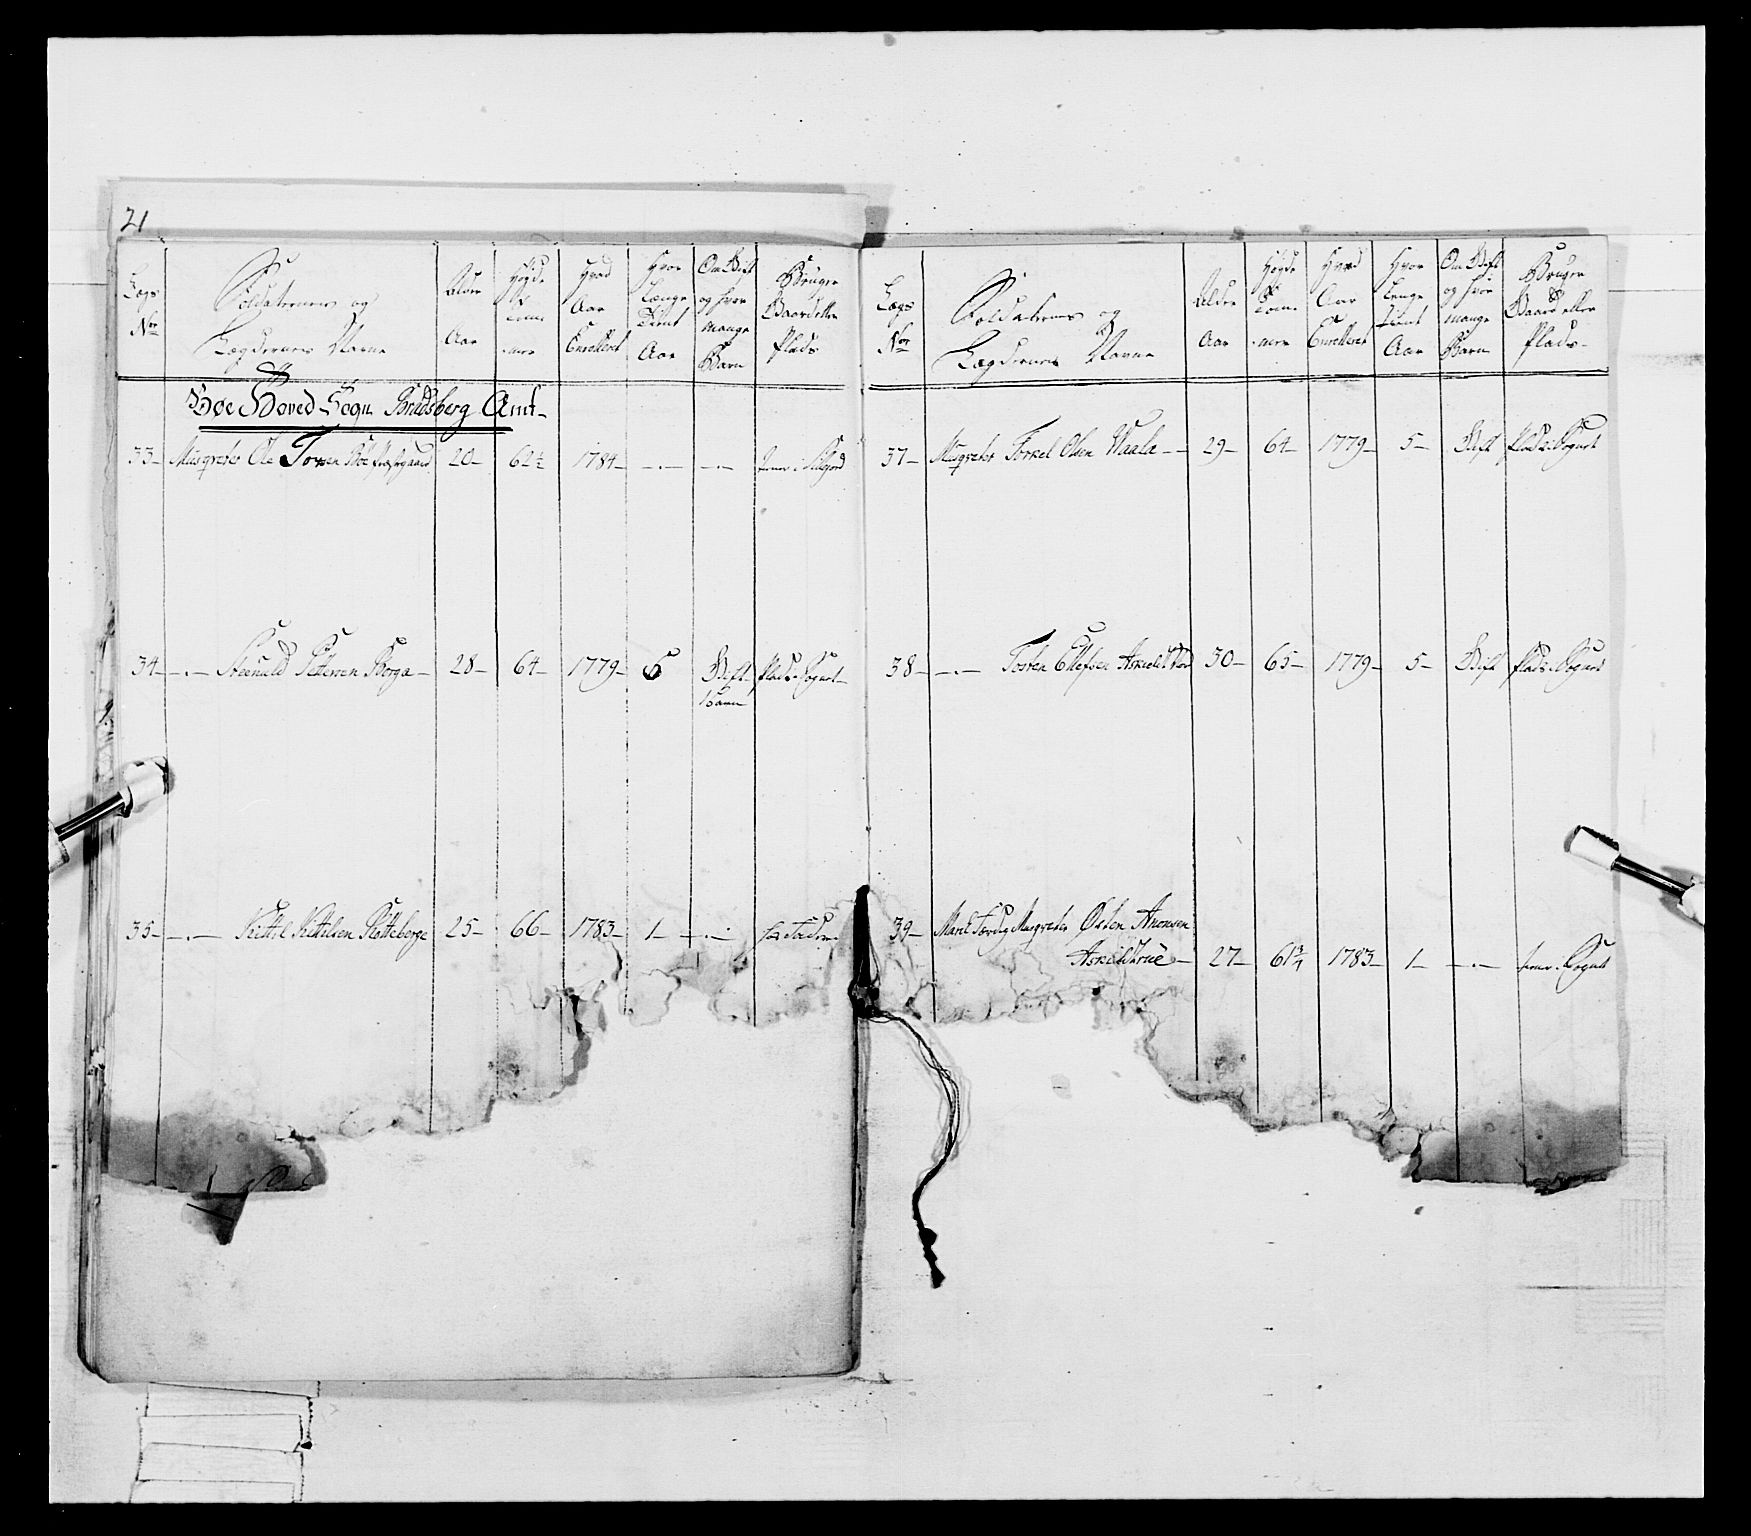 21
Lægs Nro
Soldaternes og Lægdernes Navne
Alder Aar
Høyde Tommer
Hvad Aar Enrollert
Hvor Længe Tient Aar
Om Gift og hvor mange Barn
Bruger Gaard eller Plads
Bøe Hoved-Sogn Bradsberg Amt-
33- Musqveter Ole Torsen Bøe Præstegaard 20- 62½ 1784- -.- -.- tiener i
34- -.- Petersen Borga- 28- 64- 1779- 5 Gift 1 Barn Plads i Sognet-
35- -.- Kittil Kittilsen Rotteberge 25- 66- 1783- 1- -.- Faderen
Lægs Nro
Soldaternes og Lægdernes Navne
Alder Aar
Høyde Tommer
Hvad Aar Enrolleret
Hvor Længe Tient Aar
Om Gift og hvor mange Barn
Bruger Gaard eller Plads-
37- Musqveter Torkel Olsen Waala-- 29- 64- 1779- 5- Gift Plads i Sognet
38- -.- Tosten Ellefsen 30- 65- 1779- 5- Gift Plads i Sognet
39- Musqveter Østen Anonsen
Askildtrue- 27- 61¾ 1783- 1- -.- tiener i Sognet